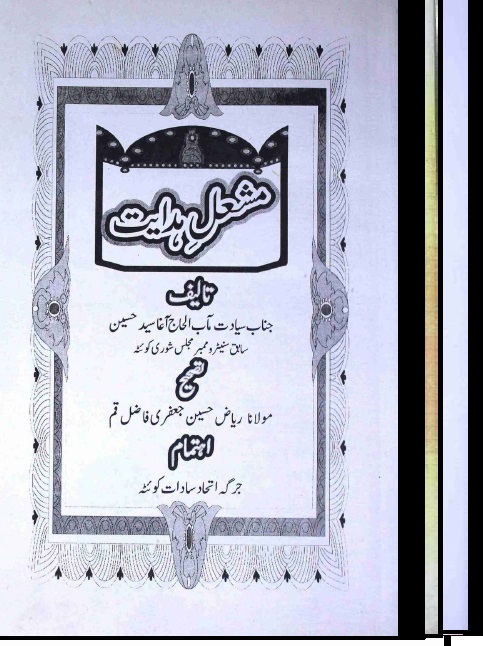 مشعلِ ہدایت
تالیف
جناب سیادت مآب الحاج آغا سید حسین
سابق سنیٹر و ممبر مجلس شوریٰ کوئٹہ
تصحیح
مولانا ریاض حسین جعفری فاضل قم
اہتمام
جرگہ اتحاد سادات کوئٹہ